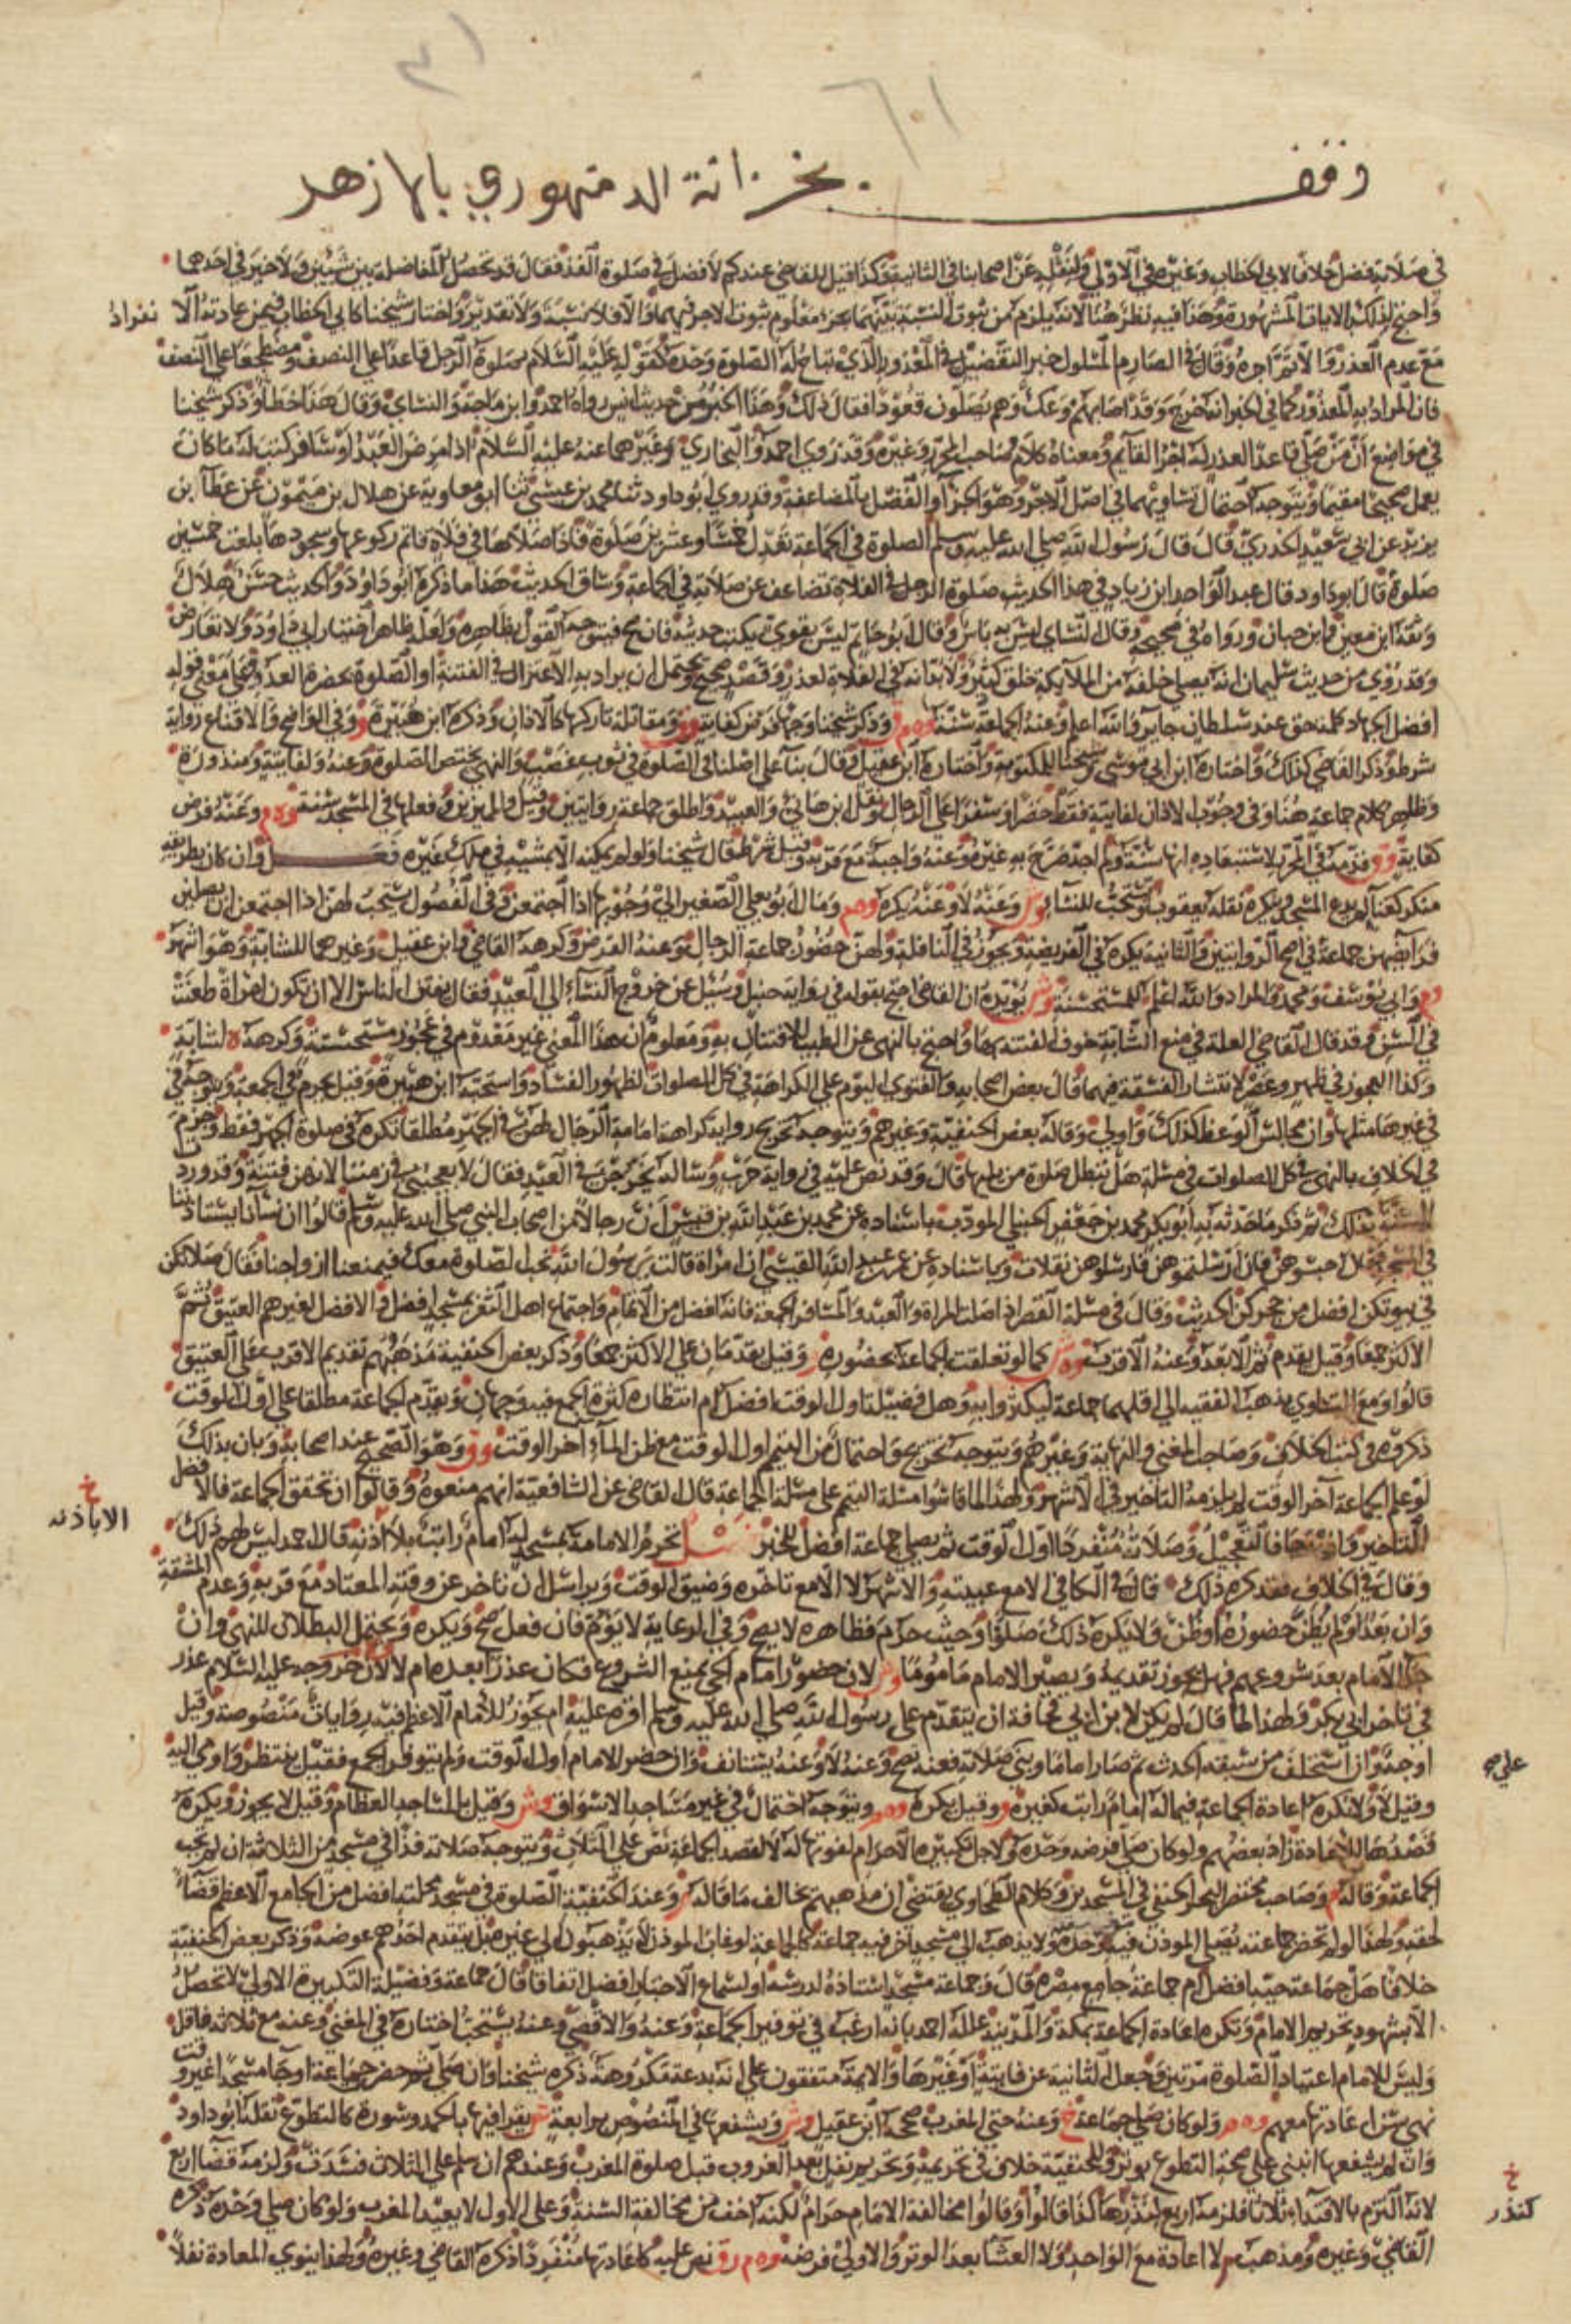 وقف بخزانة الدمنهوري بالازهر
في صلاته فضل خلافا لابي الخطاب وغيره في الاولى ولنقله عن اصحابنا في الثانية وكذا قيل للقاضي عندكم لا فضل في صلوة الفذ فقال قد تحصل المفاضلة بين شيئين ولا خير في احدهما
واحتج لذلك المشهورة وهذا فيه نظر هنا لانه يلزم من ثبوت النسبة بينهما بجزء معلوم ثبوت الاجر فيهما والا فلا نسبة ولا تقدير واختار شيخنا كابي الخطاب فيمن عادته الانفراد
مع عدم العذر والا تم اجره وقال في الصارم المسلول خبر التفضيل في المعذور الذي تباح له الصلوة وحده كقوله عليه السلام صلوة الرجل قاعدا على النصف ومضطجعا على النصف
فان المراد به المعذور كما في الخبر انه خرج وقد اصابهم وعك وهم يصلون قعودا فقال ذلك وهذا الخبر من حديث انس رواه احمد وابن ماجة والنساي وقال هذا خطا وذكر شيخنا
في مواضع ان من صلى قاعدا لعذر له اجر القايم ومعناه كلام صاحب المحرر وغيره وقد روى احمد والبخاري وغيرهما عنه عليه السلام اذا مرض العبد او سافر كتب له ما كان
يعمل صحيحا مقيما ويتوجه احتمال تساويهما في اصل الاجر وهو الجزآ والفضل بالمضاعفة وقد روى ابو داود ثنا محمد بن عيسى ثنا ابو معاوية عن هلال بن ميمون عن عطآ بن
يزيد عن ابي سعيد الخدري قال قال رسول الله صلى الله عليه وسلم الصلوة في الجماعة تعدل خمسا وعشرين صلوة فاذا صلاها في فلاة فاتم ركوعها وسجودها بلغت خمسين
صلوة قال ابو داود قال عبد الواحد ابن زياد في هذا الحديث صلوة الرجل في الفلاة تضاعف عن صلاته في الجماعة وساق الحديث هذا ما ذكره ابو داود والحديث حسن هلال
وثقه ابن معين وابن حبان ورواه في صحيحه وقال النساي ليس به باس وقال ابو حاتم ليس بقوي يكتب حديثه فان صح فيتوجه القول بظاهره ولعله ظاهر اختيار ابي داود ولا تعارض
وقد روي من حديث سليمان انه يصلي خلفه من الملآيكة خلق كثير ولانه في الفلاة لعذر وقصد صحيح ويحتمل ان يراد به الاعتزال في الفتنة او الصلوة بحضرة العدو فهي معنى قوله
افضل الجهاد كلمة حق عند سلطان جاير والله اعلم وعنه الجماعة سنة وه م وذكر شيخنا وجها فرض كفاية ومقاتلة تاركها كالاذان وذكره ابن هبيرة وفي الواضح والاقناع رواية
شرط وذكر القاضي كذلك واختاره ابن ابي موسى وشيخنا للمكتوبة واختاره ابن عقيل وقال بنآ على اصلنا في الصلوة في ثوب غصب والنهي يختص الصلوة وعنه ولفايتة ومنذورة
وظاهر كلام جماعة هنا وفي وجوب الاذان لفايتة فقط حضرا وسفرا على الرجال ونقل ابن هاني والعبيد واطلق جماعة روايتين وقيل والمميزين وفعلها في المسجد سنة وه م وعنه فرض
كفاية وق قدمه في المحرر لاستبعاده انها سنة ولم اجد صرح به غيره وعنه واجبة مع قربه وقيل شرط قال شيخنا ولو لم يمكنه الا بمشيه في ملك غيره فعل وان كان بطريقه
منكر كغنا لم يدع المسجد وينكره نقله يعقوب وتستحب للنسآ وش وعنه لا وعنه يكره وه م ومال ابو يعلى الصغير الى وجوبها اذا اجتمعن وفي الفصول يستحب لهن اذا اجتمعن ان يصلين
فرايضهن جماعة في اصح الروايتين والثانية يكره في الفريضة ويجوز في النافلة ولهن حضور جماعة الرجال وعنه الفرض وكرهه القاضي وابن عقيل وغيرهما للشابة وهو اشهر
وابي يوسف ومحمد والمراد والله اعلم للمستحسنة وش يؤيده ان القاضي احتج بقوله في رواية حنبل وسئل عن خروج النسآء الى العيد فقال يفتن الناس الا ان تكون امراة طعنت
في السن وقد قال القاضي العلة في منع الشابة خوف الفتنة بها واحتج بالنهي عن الطيب للافتتان به ومعلوم ان هذا المعنى غير معدوم في عجوز مستحسنة وكرهه ه لشابة
وكذا العجوز في ظهر وعصر لانتشار الفسقة فيهما قال بعض اصحابه والفتوى اليوم على الكراهة في كل الصلوات لظهور الفساد واستحبه ابن هبيرة وقيل يحرم في الجمعة ويتوجه
في غيرها مثلها وان مجالس الوعظ كذلك واولى وقاله بعض الحنفية وغيرهم ويتوجه تخريج رواية كراهة امامة الرجال لهن في الجهر مطلقا تكره في صلوة الجهر فقط وجزم
في الخلاف بالنهي في كل الصلوات في مسلة هل تبطل صلوة من يليها قال وقد نص عليه في رواية حرب وساله يخرجن في العيد فقال لا يعجبني في زمننا لانهن فتنة وقد وردت
السنة بذلك ثم ذكر ما حدثه به ابو بكر محمد بن جعفر الحنبلي المودب باسناده عن محمد بن عبد الله بن قيس ان رجالا من اصحاب النبي صلى الله عليه وسلم قالوا ان نسانا يستاذننا
في المسجد فقال احبسوهن فان ارسلتموهن فارسلوهن تفلات وباسناده عن عبد الله القيسي ان امراة قالت يرسول الله نحب الصلوة معك فيمنعنا ازواجنا فقال صلاتكن
في بيوتكن افضل من حجركن الحديث وقال في مسلة القصر اذا صلت المراة والعبد والمسافر الجمعة فانه افضل من الاتمام واجتماع اهل الثغر بمسجد افضل والافضل لغيرهم العتيق ثم
الاكثر جمعا وقيل يقدم ثم الابعد وعنه الاقرب وه ش كما لو تعلقت الجماعة بحضوره وقيل يقدمان على الاكثر جمعا وذكر بعض الحنفية مذهبهم تقديم الاقرب على العتيق
قالوا ومع التساوي يذهب الفقيه الى اقلهما جماعة ليكثروا به وهل فضيلة اول الوقت افضل ام انتظار كثرة الجمع فيه وجهان وتقدم الجماعة مطلقا على اول الوقت
ذكروه في كتب الخلاف وصاحب المغني والنهاية وغيرهم ويتوجه تخريج واحتمال من التيمم اول الوقت مع ظن المآء آخر الوقت وق وهو الصحيح عند اصحابه وبان بذلك
لو علم الجماعة آخر الوقت لم يلزمه التاخير في الاشهر ولهذا لما قاسوا مسلة التيمم على مسلة الجماعة قال القاضي عن الشافعية انهم منعوه وقالوا ان تحقق الجماعة فالافضل
التاخير وان رجا فالتعجيل وصلاته منفردا اول الوقت ثم يصلي جماعة افضل للخبر فصل تحرم الامامة بمسجد له امام راتب بلا اذنه قال احمد ليس لهم ذلك
وقال في الخلاف فقد كره ذلك قال في الكافي الا مع غيبته والاشهر لا الا مع تاخره وضيق الوقت ويراسل ان تاخر عن وقته المعتاد مع قربه وعدم المشقة
وان بعد او لم يظن حضوره او ظن ولا يكره ذلك صلوا وحيث حرم فظاهره لا يصح وفي الرعاية لا يؤم فان فعل صح ويكره ويحتمل البطلان للنهي وان
جآ الامام بعد شروعهم فهل يجوز تقديمه ويصير الامام ماموما وش لان حضور امام الحي يمنع الشروع فكان عذرا بعده ام لا لان خروجه عليه السلام عذر
في تاخر ابي بكر ولهذا لما قال لم يكن لابن ابي قحافة ان يتقدم على رسول الله صلى الله عليه وسلم اقره عليه ام يجوز للامام الاعظم فيه روايات منصوصة وقيل
اوجه وان استخلف من سبقه الحدث ثم صار اماما وبنى صلاته فعنه يصح وعنه لا وعنه يستانف وان حضر الامام اول الوقت ولم يتوفر الجمع فقيل ينتظر واومى اليه
وقيل لا ولا تكره اعادة الجماعة فيما له امام راتب كغيره وقيل يكره وه م ويتوجه احتمال في غير مساجد الاسواق وش وقيل بالمساجد العظام وقيل لا يجوز ويكره
قصدها للاعادة زاد بعضهم ولو كان صلى فرضه وحده ولاجل تكبيرة الاحرام لفوتها له لا لقصد الجماعة نص على الثلاث ويتوجه صلاته فذا في مسجد من الثلاثة ان لم تجب
الجماعة وقاله وصاحب مختصر البحر الحنفي في المسجدين وكلام الطحاوي يقتضي ان مذهبهم يخالف ما قاله وعند الحنفية الصلوة في مسجد محلته افضل من الجامع الاعظم قضآء
لحقه ولهذا لو لم تحضر جماعته يصلي المؤذن فيه وحده ولا يذهب الى مسجد آخر فيه جماعة كالجماعة لو غاب المؤذن لا يذهبون الى غيره بل يتقدم احدهم عوضه وذكر بعض الحنفية
خلافا هل جماعة حيه افضل ام جماعة جامع مصره قال وجماعة مسجد استاذه لدرسه او لسماع الاخبار افضل اتفاقا قال جماعة وفضيلة التكبيرة الاولى لا تحصل
الا بشهود تحريم الامام وتكره اعادة الجماعة بمكة والمدينة علله احمد بانه ارغب في توفير الجماعة وعنه والاقصى وعنه يستحب اختاره في المغني وعنه مع ثلاثة فاقل
وليس للامام اعتياد الصلوة مرتين وجعل الثانية عن فايتة او غيرها والايمة متفقون على انه بدعة مكروهة ذكره شيخنا وان صلى ثم حضر جماعة او جآ مسجدا غير وقت
نهي سن اعادتها معهم وه م ولو كان صلى جماعة خ وعنه حتى المغرب صححه ابن عقيل وش ويشفعها في المنصوص برابعة يقرا فيها بالحمد وسورة كالتطوع نقله ابو داود
وان لم يشفعها انبنى على صحة التطوع بوتر وللحنفية خلاف في تحريمه وتحريم نفل بعد الغروب قبل صلوة المغرب وعندهم ان سلم على الثلاث فسدت ولزمه قضا اربع
لانه التزم بالاقتدآء ثلاثا فلزمه اربع لنذرها كذا قالوا وقالوا مخالفة الامام حرام لكنه اخف من مخالفة السنة وعلى الاول لا يعيد المغرب ولو كان صلى وحده ذكره
القاضي وغيره ومذهب م لا اعادة مع الواحد ولا العشا بعد الوتر والاولى فرضه وه م ر ق نص عليه كاعادتها منفردا ذكره القاضي وغيره ولهذا ينوي المعادة نفلا
خ
الا باذنه
علي صح
خ
كنذر